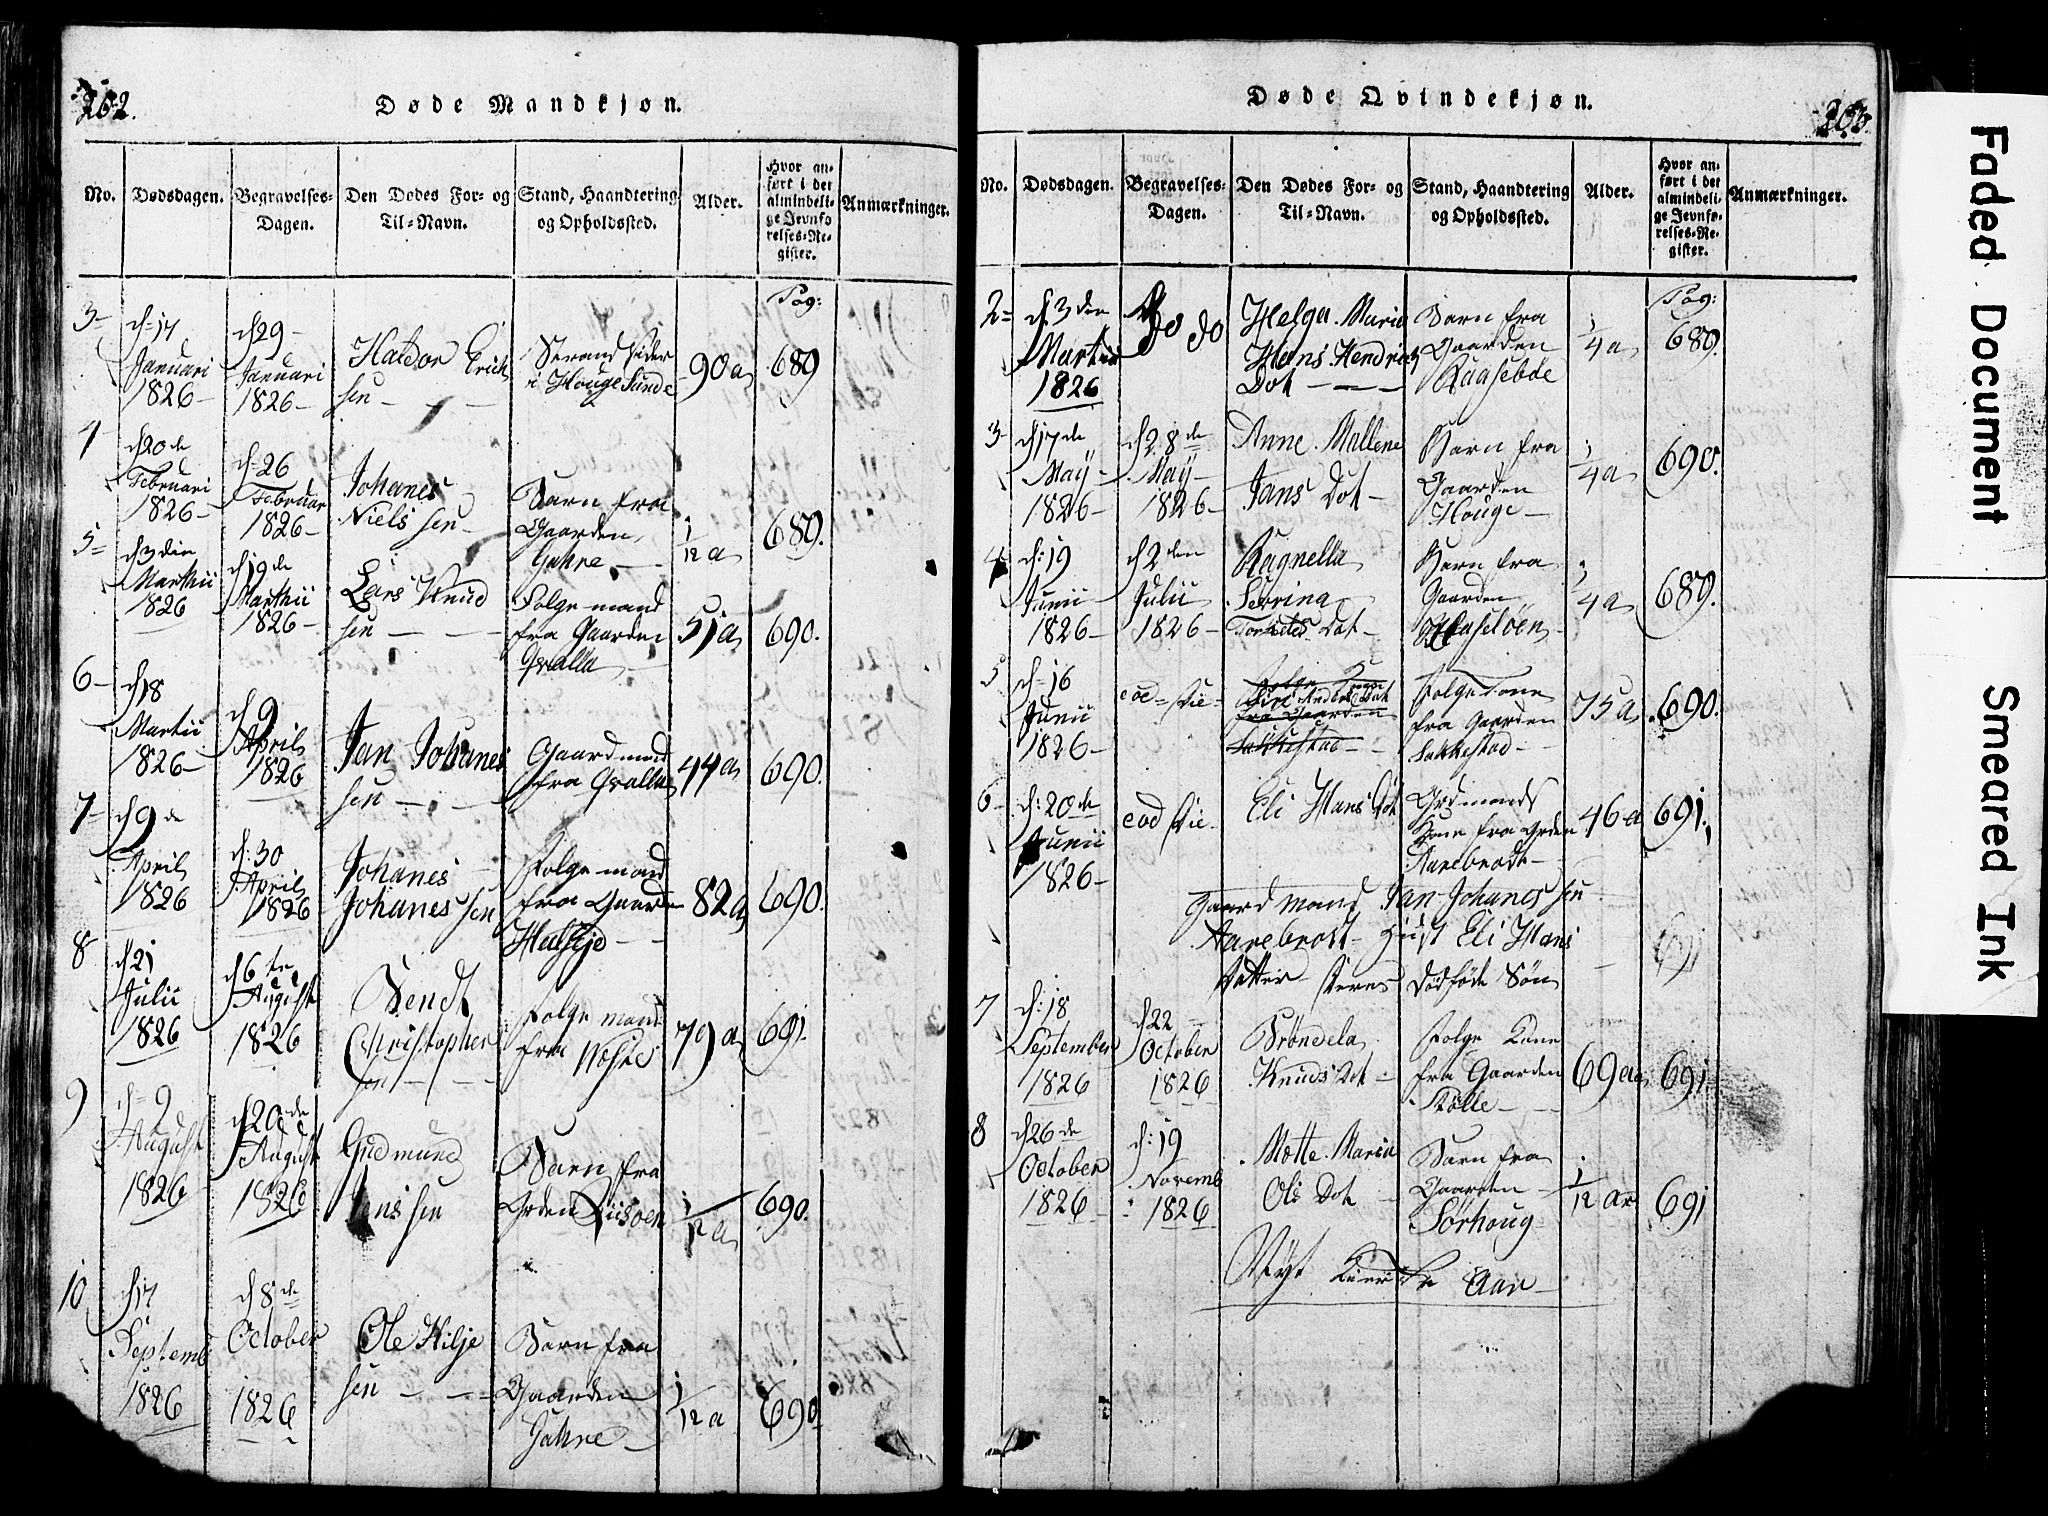 262.
Døde Mandkjøn.
No.
Dødsdagen.
Begravelses-
Dagen.
Den Dødes For- og
Til-Navn.
Stand, Haandtering
og Opholdssted.
Alder.
Hvor an-
ført i det
almindeli-
ge Jevnfø
relses-Re-
gister.
Anmærkninger.
3-
d=17
Januari
1826-
d29-
Januari
1826-
Haldor Erich
sen-
Strandsider
i Houge Sunde
90a
Pag:
689
4
d20de
Februari
1826-
d=26
Februar
1826-
Johanes
Niels sen-
Barn fra
Gaarden
Gahre
1/12 a
689.
5=
d3die
Marthii
1826
d19de
Marthii
1826-
Lars Knud
sen
Folge mand
fra Gaarden
Qvalla
51a
690.
6-
d18
Martii
1826-
d9
April
1826
Jan Johanes
sen
Gaardmand
fra Qvalla
44a
690.
7-
d9de
April
1826
d:30
April
1826
Johanes
Johanes sen
Folge mand
fra Gaarden
82a
690.
8
d21
Julii
1826
d6te
August
1826
Bendt
Christopher
sen
Folge mand
fra
79a
691.
9
d=9
August
1826-
d20de
August
1826
Gudmund
Jens sen
Barn fra
Grden
1/12 a
690.
10
d17
Septemb
1826
d8de
October
1826
Ole Hilje
sen
Barn fra
Gaarden
Gahre
1/12 a
690.
Døde Qvindekjøn.
263.
No.
Dødsdagen.
Begravelses-
Dagen.
Den Dødes For- og
Til-Navn.
Stand, Haandtering
og Opholdssted.
Alder.
Hvor an-
ført i det
almindeli-
ge Jevnfø-
relses-Re-
gister.
Anmærkninger.
2=
d.3die
Martii
1826
do do
Helga Maria
Hans Hendrich
Dot
Barn fra
Gaarden
Raasebøe
1/4a
Pag:
689.
3-
d17de
Maÿ
1826-
d28de
Maÿ-
1826-
Anne Mallene
Jans Dot-
Barn fra
Gaarden
Houge-
1/4a
690.
4
d:19
Junii
1826-
d2den
Julii
1826-
Ragnella
Serina
Torkels Dot-
Barn fra
Gaarden
Haseløen
1/4a
689.
5
d=16
Junii
1826-
eod=Die-
Siri Anders Dat
fra Gaarden
Lakkestad
Folge Kone
fra Gaarden
Lakkestad-
75a
690.
6-
d:20de
Junii
1826-
eod Die-
Eli Hans Dot
Grdmands
Kone fra Grden
Aarebrodt-
46a
691.
Gaard mand Jan Johanes sen
Aarebrodt- Hust Eli Hans
Datter Deres Dødføde Søn
691
7
d:18
September
1826
d22
October
1826
Brøndela
Knuds Dot-
Folge Kone
fra Gaarden
Stølle-
69aa
691
8
d26de
October
1826-
d:19
Novemb
1826
Mette Maria
Ols Dot-
Barn fra
Gaarden
Sørhoug
1/12 ar
691
Nÿt Kierke Aar
Faded Document
Smeared Ink